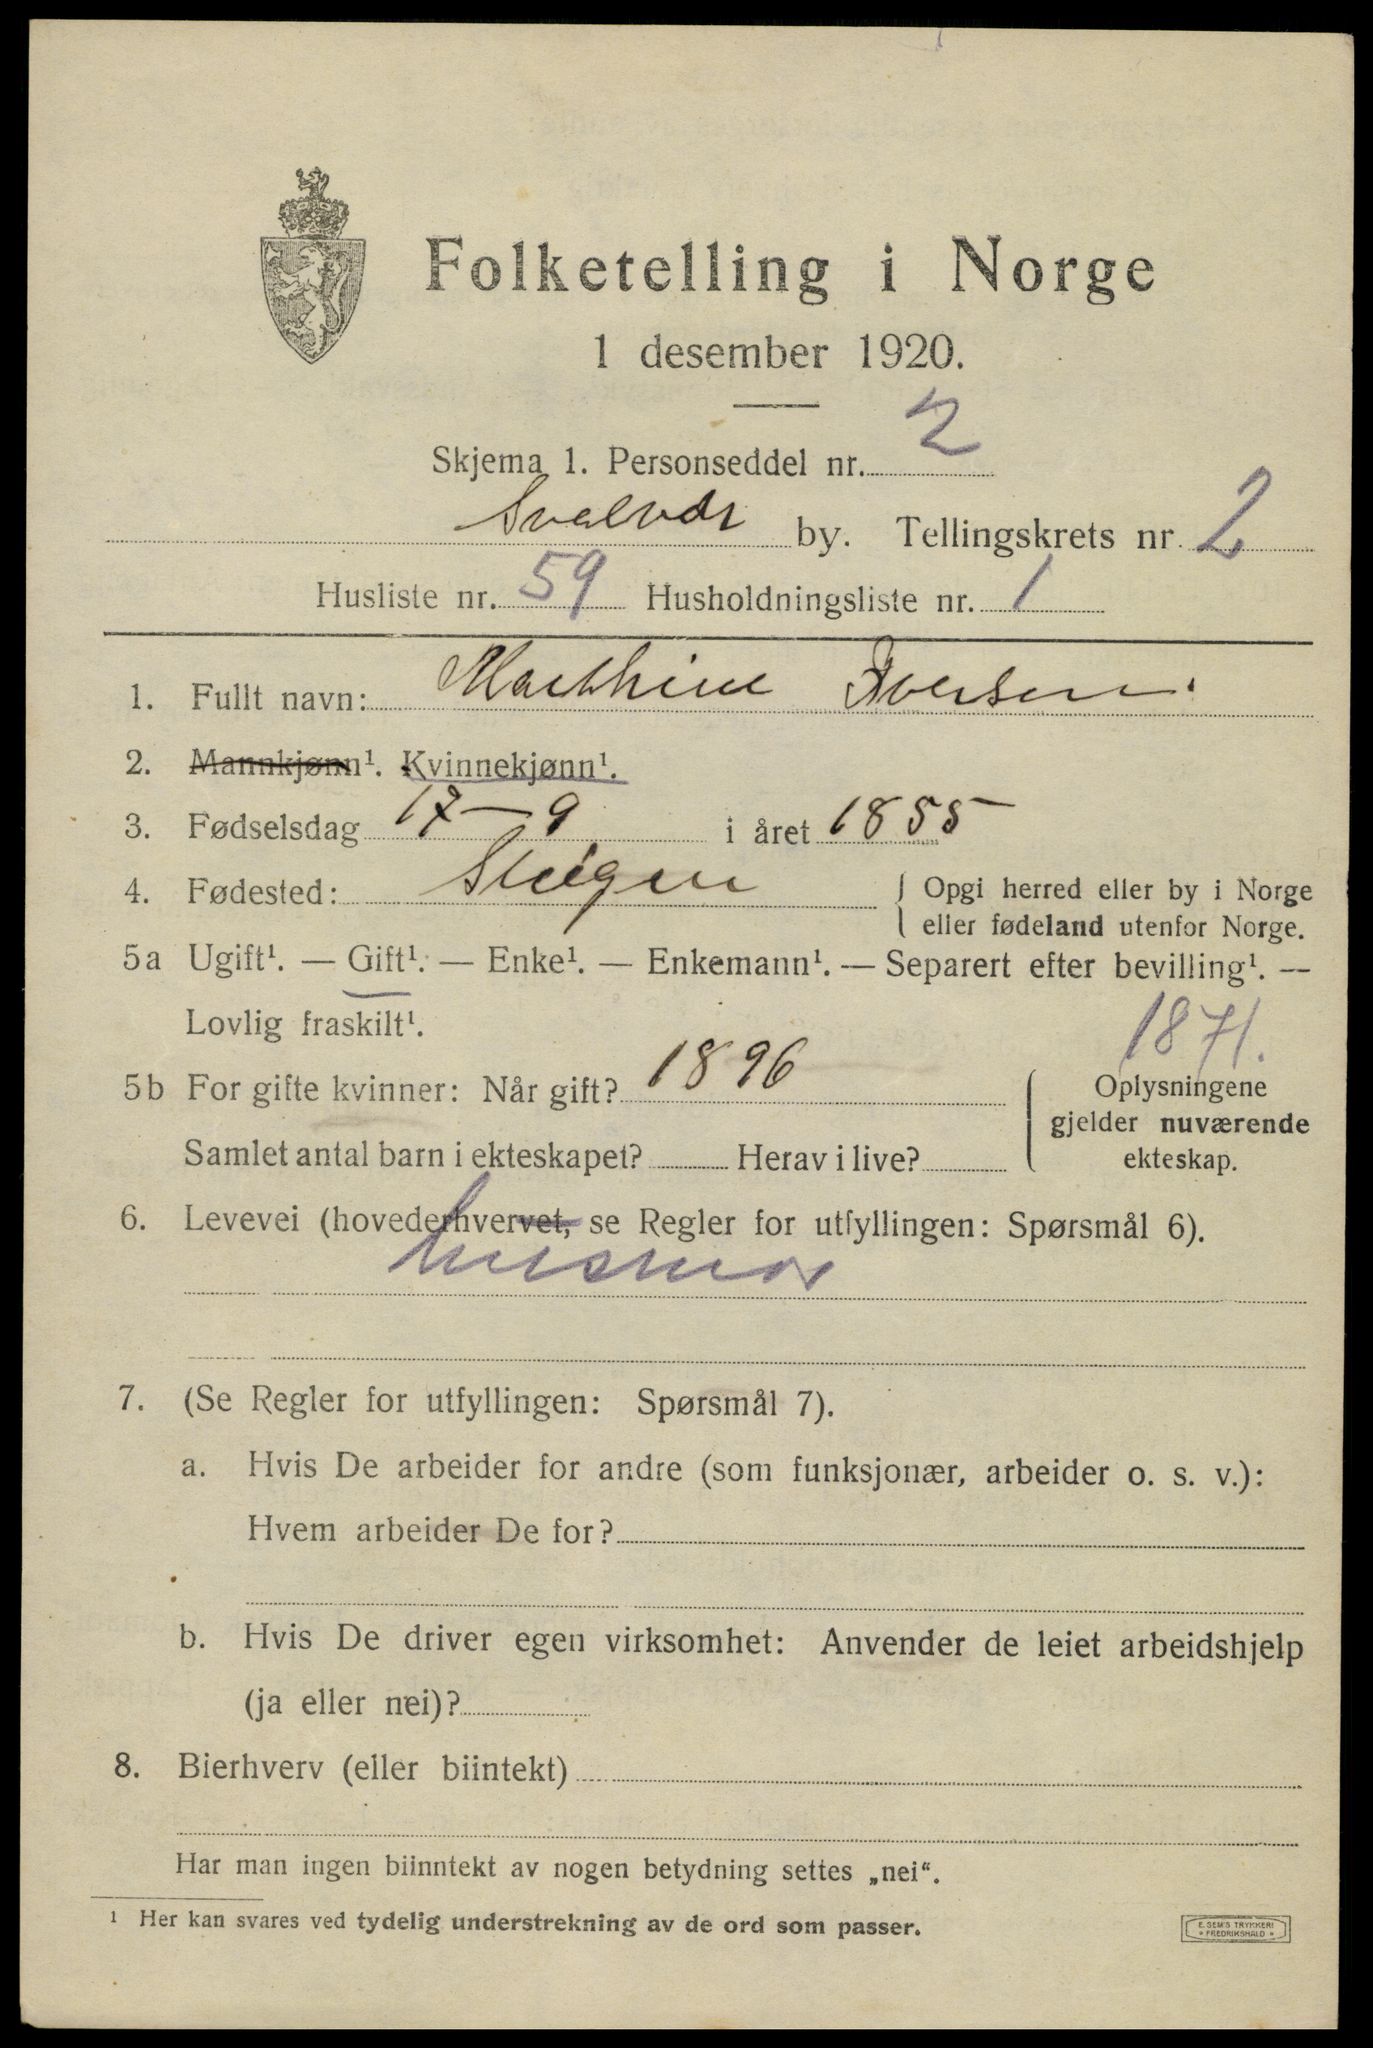 Folketelling i Norge
1 desember 1920.
Skjema 1. Personseddel nr. 2
Svolvær by. Tellingskrets nr. 2
Husliste nr. 59 Husholdningsliste nr. 1
1. Fullt navn: Marthine Iversen.
2. Mannkjønn¹. Kvinnekjønn¹.
3. Fødselsdag 17-9 i året 1855
4. Fødested: Steigen { Opgi herred eller by i Norge
eller fødeland utenfor Norge.
5a Ugift¹. — Gift¹. — Enke¹. — Enkemann¹. — Separert efter bevilling¹. —
Lovlig fraskilt¹.
1871.
5b For gifte kvinner: Når gift? 1896 { Oplysningene
gjelder nuværende
Samlet antal barn i ekteskapet? Herav i live? ekteskap.
6. Levevei (hovederhvervet, se Regler for utfyllingen: Spørsmål 6).
husmor
7. (Se Regler for utfyllingen: Spørsmål 7).
a. Hvis De arbeider for andre (som funksjonær, arbeider o. s. v.):
Hvem arbeider De for?
b. Hvis De driver egen virksomhet: Anvender de leiet arbeidshjelp
(ja eller nei)?
8. Bierhverv (eller biintekt)
Har man ingen biinntekt av nogen betydning settes „nei“.
¹ Her kan svares ved tydelig understrekning av de ord som passer.
E. SEM'S TRYKKERI
* FREDRIKSHALD *